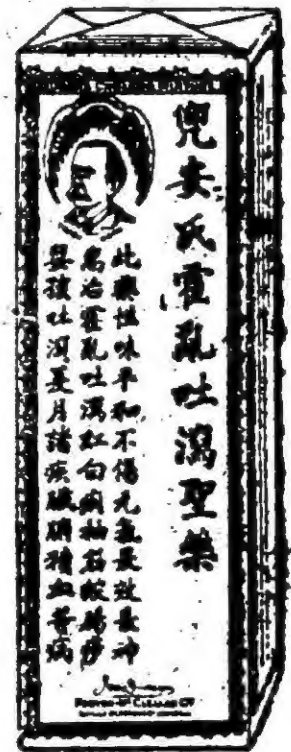 兜安氏霍亂吐瀉聖藥
此藥性味平和不傷元氣最效最神
為治霍亂吐瀉紅白痢抽筋絞腸痧
嬰孩吐瀉夏月諸疾臟腑積血等病
FOSTER-McCLELLAN CO